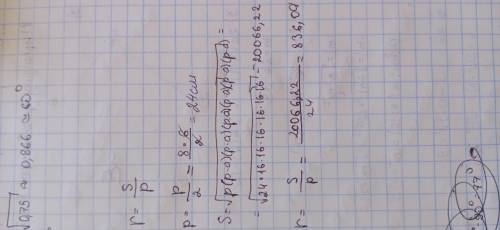 √0,75 ≈ 0,866 ≈ 60°
r = S/p
p = P/2 = 8·6/2 = 24см
S = √p(p-a)(p-a)(p-a)(p-a)(p-a)(p-a) =
= √24·16·16·16·16·16·16 = 20066,22
r = S/p = 20066,22/24 = 836,09